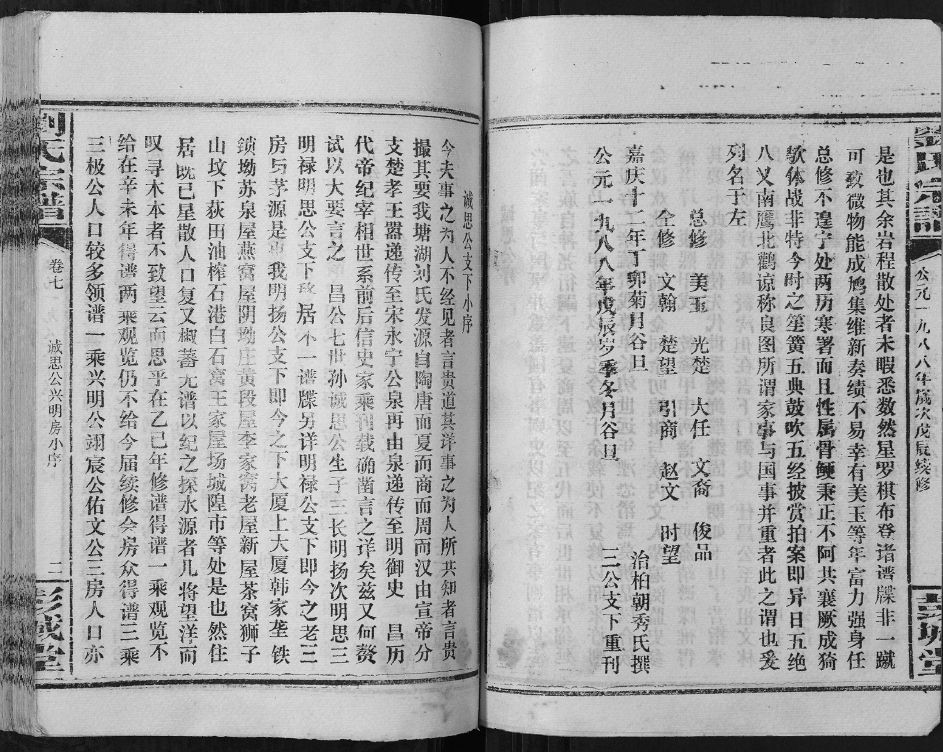 是也其余岩程散处者未暇悉数然星罗棋布登诸谱牒非一蹴
可致微物能成鸠集维新奏绩不易幸有美玉等年富力强身任
总修不遑宁处两历寒署而且性属骨鲠秉正不阿共襄厥成猗
欤体战非特今时之笙簧五典鼓吹五经披赏拍案即异日五绝
八叉南鹰北鹳谅称良图所谓家事与国事并重者此之谓也爰
列名于左
总修 美玉 光楚 大任 文裔 俊品
仝修 文翰 楚望 引商 赵文 时望
嘉庆十二年丁卯菊月谷旦 治柏朝秀氏撰
公元一九八八年戊辰岁季冬月谷旦 三公支下重刊
公元一九八八年岁次戊辰续修
彭城堂
诚思公支下小序
今夫事之为人不经见者言贵道其详事之为人所共知者言贵
撮其要我塘湖刘氏发源自陶唐而夏而商而周而汉由宣帝分
支楚孝王嚣递传至宋永宁公泉再由泉递传至明御史 昌历
代帝纪宰相世系前后信史家乘稗载确凿言之详矣兹又何赘
试以大要言之 昌公七世孙诚思公生子三长明扬次明思三
明禄明思公支下 居 不一谱牒另详明禄公支下即今之老三
房与茅源是 我明扬公支下即今之下大厦上大厦韩家垄铁
锁坳苏泉屋燕窝屋阴坳庄黄段屋李家 老屋新屋茶窝狮子
山坟下荻田油榨石港白石窝王家屋场城隍市等处是也然住
居既已星散人口复又椒蕃无谱以纪之探水源者几将望洋而
叹寻木本者不致望云而思乎在乙巳年修谱得谱一乘观览不
给在辛未年得谱两乘观览仍不给今届续修会房众得谱三乘
三极公人口较多领谱一乘兴明公翊宸公佑文公三房人口亦
刘氏宗谱
卷七
诚思公兴明房小序
二
彭城堂